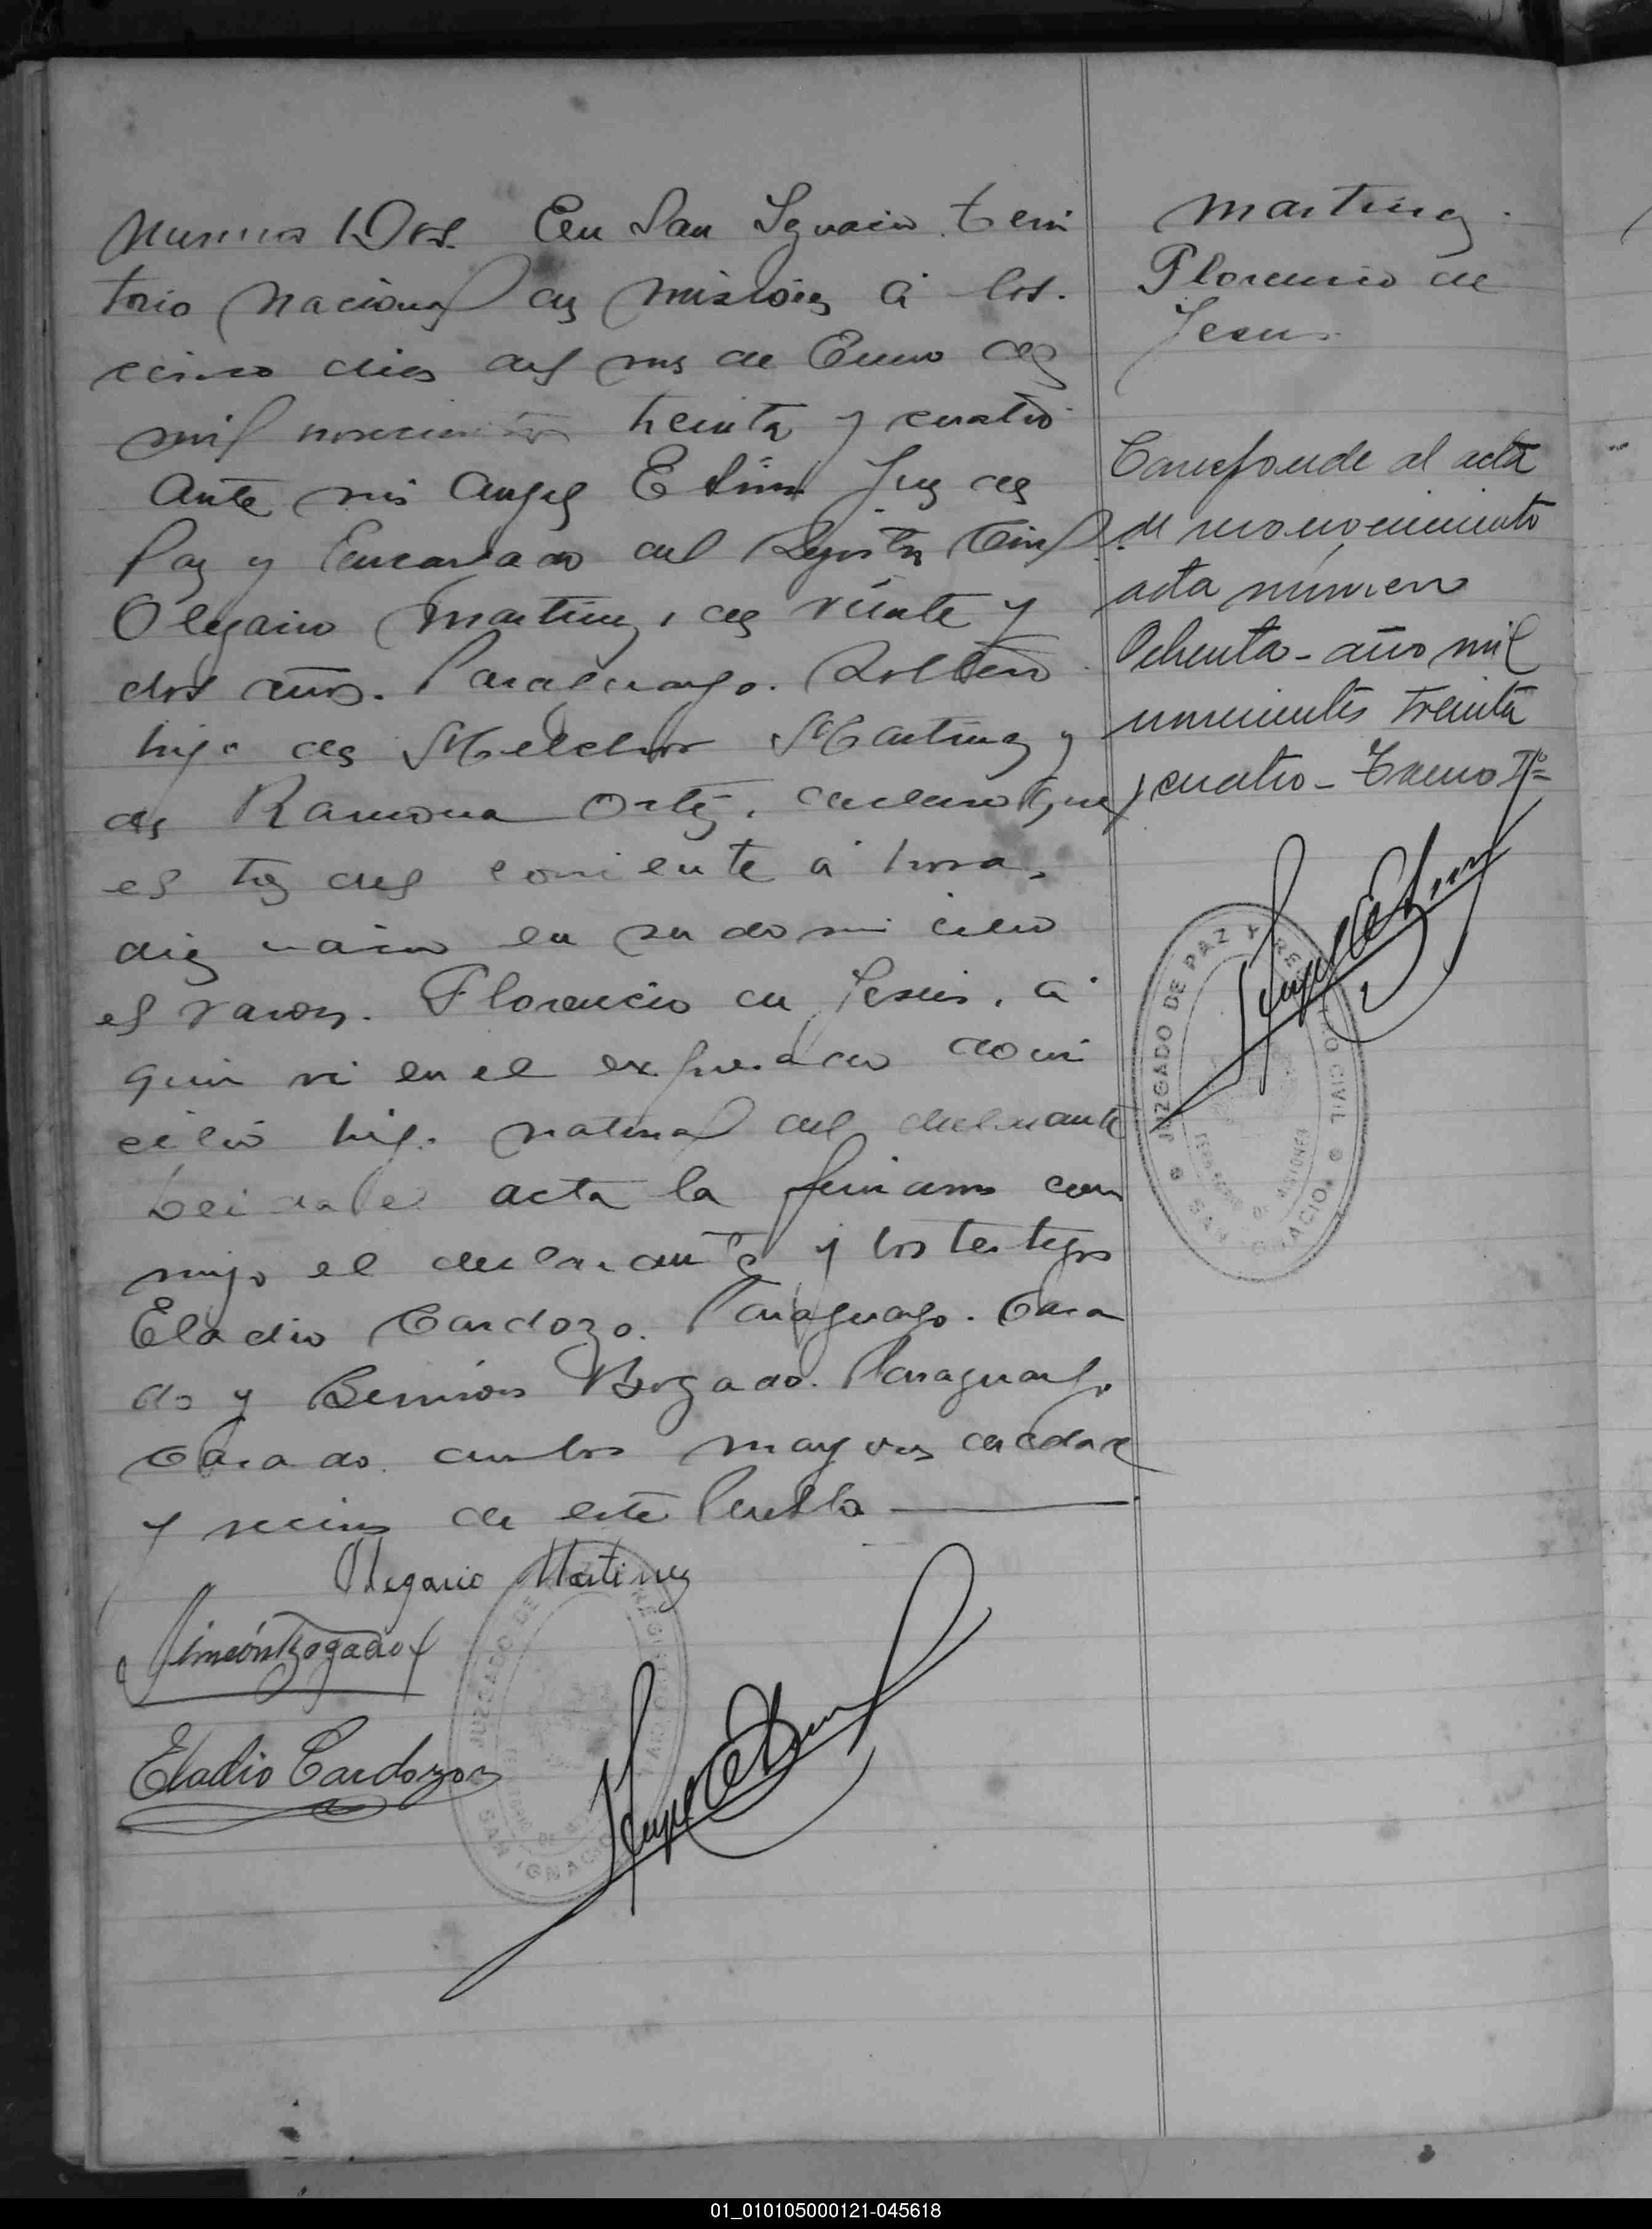 Numero Dos. En San Ignacio. terri
torio Nacional de Misiones á los.
cinco dias del mes de Enero de
mil novecientos treinta y cuatro
Ante mi Angel E Juez de
Paz y Encargado del Registro Civil
Olegario Martinez, de veinte y
dos años. Paraguayo. Soltero
hijo de Melchor Martinez y
de Ramona Ortiz. declaro que
el tres del corriente á hora,
diez nacio en su domicilio
el varon. Florencio de Jesús. á
quien vi en el expresado domi
cilio hijo natural del declarante
Leida el acta la firmaron con
migo el declarante y los testigos
Eladio Cardozo. Paraguayo. Casa
do y Simeón Bogado. Paraguayo
Casado ambos mayores de edad
y vecinos de este Pueblo
Olegario Martinez
Simeón Bogado
Eladio Cardozo
JUZGADO DE REGISTRO CIVIL
SAN IGNACIO
Martinez.
Florencio de
Jesus.
Corresponde al acta
de reconocimiento
acta número
Ochenta - año mil
novecientos treinta
y cuatro - Tomo IIº
JUZGADO DE PAZ Y REGISTRO CIVIL
TERRITORIO DE MISIONES
SAN IGNACIO
01_010105000121-045618